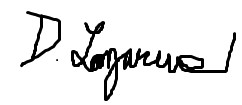 D. Lazarus